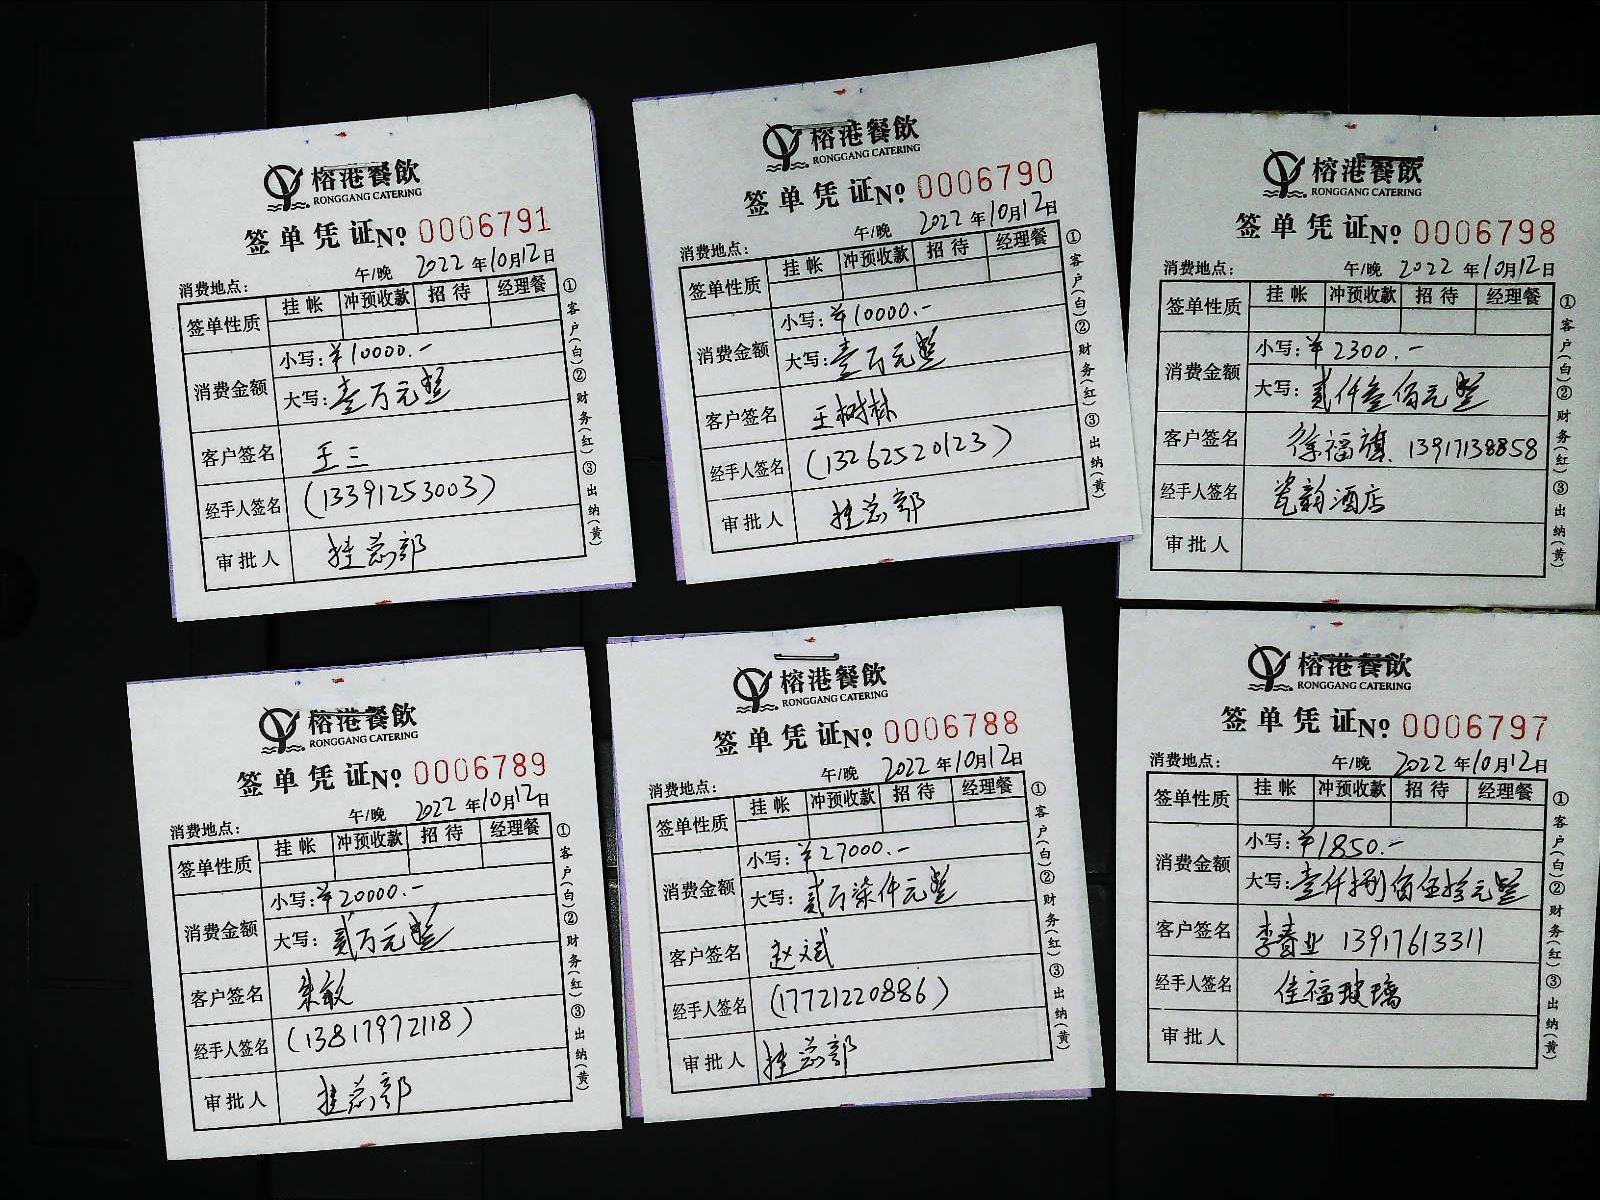 榕港餐飲
RONGGANG CATERING
签单凭证 No. 0006791
消费地点: 午/晚 2022年10月12日
签单性质 挂帐 冲预收款 招待 经理餐
消费金额 小写:¥10000.-
大写:壹万元整
客户签名 王三
经手人签名 (13391253003)
审批人 挂总部
①客户(白)②财务(红)③出纳(黄)
榕港餐飲
RONGGANG CATERING
签单凭证 No. 0006790
消费地点: 午/晚 2022年10月12日
签单性质 挂帐 冲预收款 招待 经理餐
消费金额 小写:¥10000.-
大写:壹万元整
客户签名 王树林
经手人签名 (13262520123)
审批人 挂总部
①客户(白)②财务(红)③出纳(黄)
榕港餐飲
RONGGANG CATERING
签单凭证 No. 0006798
消费地点: 午/晚 2022年10月12日
签单性质 挂帐 冲预收款 招待 经理餐
消费金额 小写:¥2300.-
大写:贰仟叁佰元整
客户签名 徐福旗 13917138858
经手人签名 瓷韵酒店
审批人
①客户(白)②财务(红)③出纳(黄)
榕港餐飲
RONGGANG CATERING
签单凭证 No. 0006789
消费地点: 午/晚 2022年10月12日
签单性质 挂帐 冲预收款 招待 经理餐
消费金额 小写:¥20000.-
大写:贰万元整
客户签名 朱敏
经手人签名 (13817972118)
审批人 挂总部
①客户(白)②财务(红)③出纳(黄)
榕港餐飲
RONGGANG CATERING
签单凭证 No. 0006788
消费地点: 午/晚 2022年10月12日
签单性质 挂帐 冲预收款 招待 经理餐
消费金额 小写:¥27000.-
大写:贰万柒仟元整
客户签名 赵斌
经手人签名 (17721220886)
审批人 挂总部
①客户(白)②财务(红)③出纳(黄)
榕港餐飲
RONGGANG CATERING
签单凭证 No. 0006797
消费地点: 午/晚 2022年10月12日
签单性质 挂帐 冲预收款 招待 经理餐
消费金额 小写:¥1850.-
大写:壹仟捌佰伍拾元整
客户签名 李春业 13917613311
经手人签名 佳福玻璃
审批人
①客户(白)②财务(红)③出纳(黄)